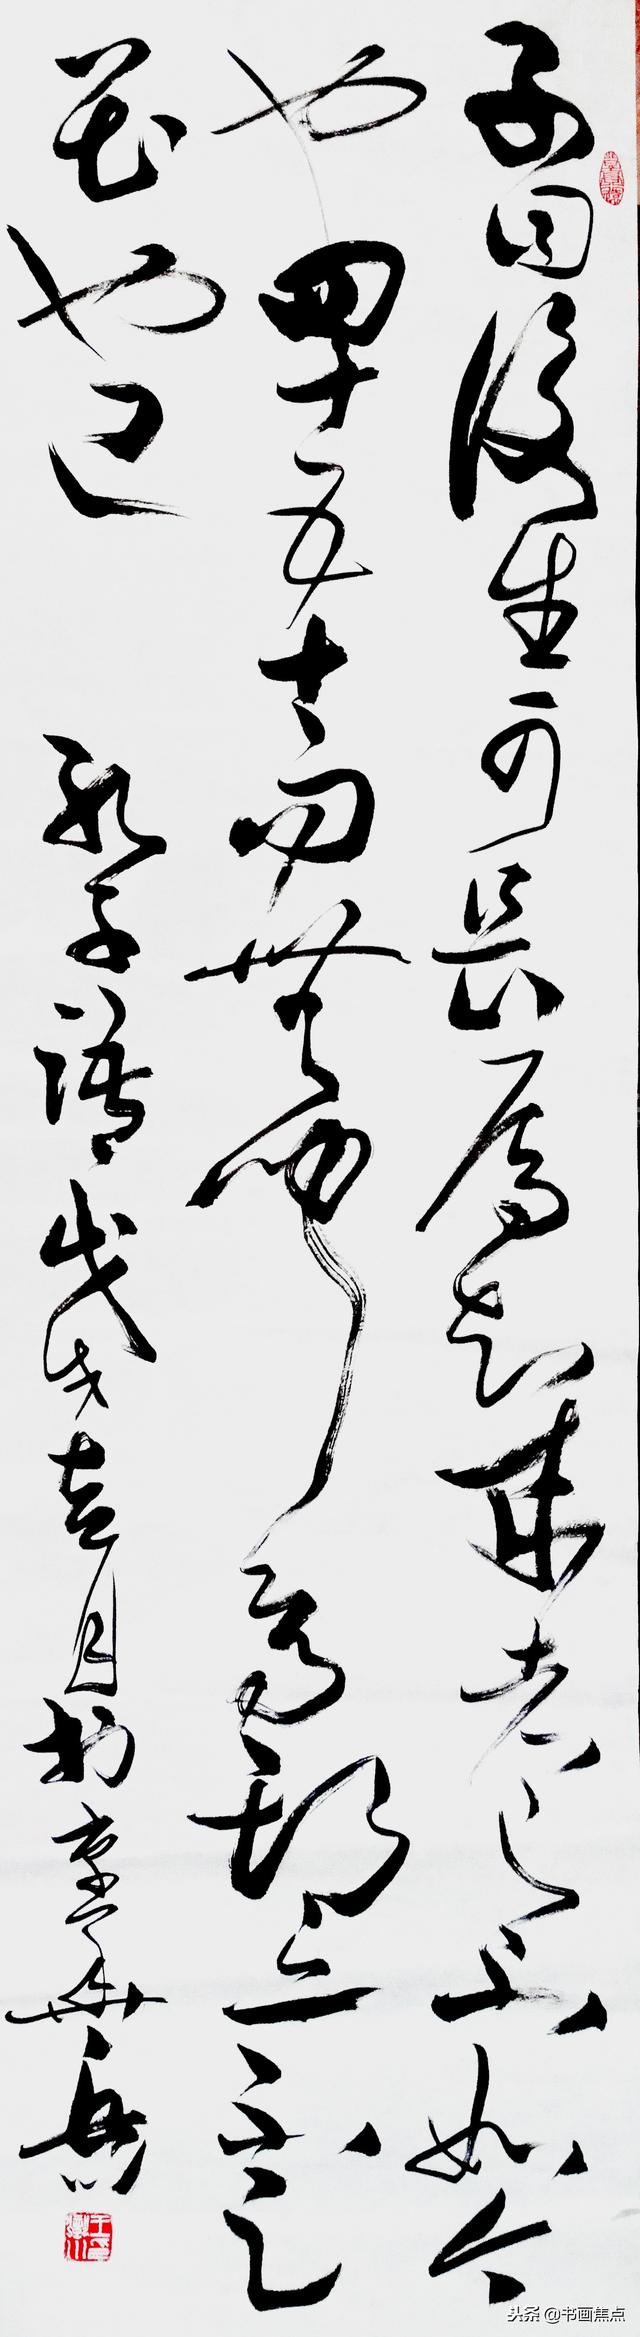 子曰後生可畏焉知來者之不如今
也四十五十而無聞焉斯亦不足
畏也已
孔子語戊戌月於京華
头条 @书画焦点